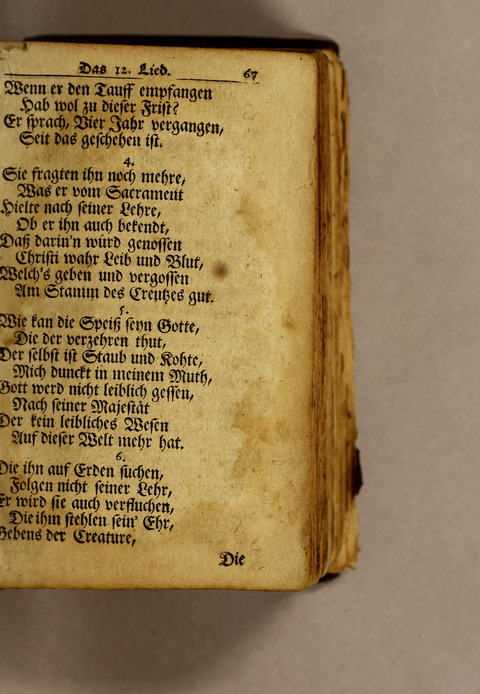 Das 12. Lied. 67
Wenn er den Tauff empfangen
Hab wol zu dieser Frist?
Er sprach, Vier Jahr vergangen,
Seit das geschehen ist.
4.
Sie fragten ihn noch mehre,
Was er vom Sacrament
Hielte nach seiner Lehre,
Ob er ihn auch bekendt,
Daß darin'n würd genossen
Christi wahr Leib und Blut,
Welch's geben und vergossen
Am Stamm des Creutzes gut.
5.
Wie kan die Speiß seyn Gotte,
Die der verzehren thut,
Der selbst ist Staub und Kohte,
Mich dunckt in meinem Muth,
Gott werd nicht leiblich gessen,
Nach seiner Majestät
Der kein leibliches Wesen
Auf dieser Welt mehr hat.
6.
Die ihn auf Erden suchen,
Folgen nicht seiner Lehr,
Er wird sie auch verfluchen,
Die ihm stehlen sein' Ehr,
Gebens der Creature,
Die